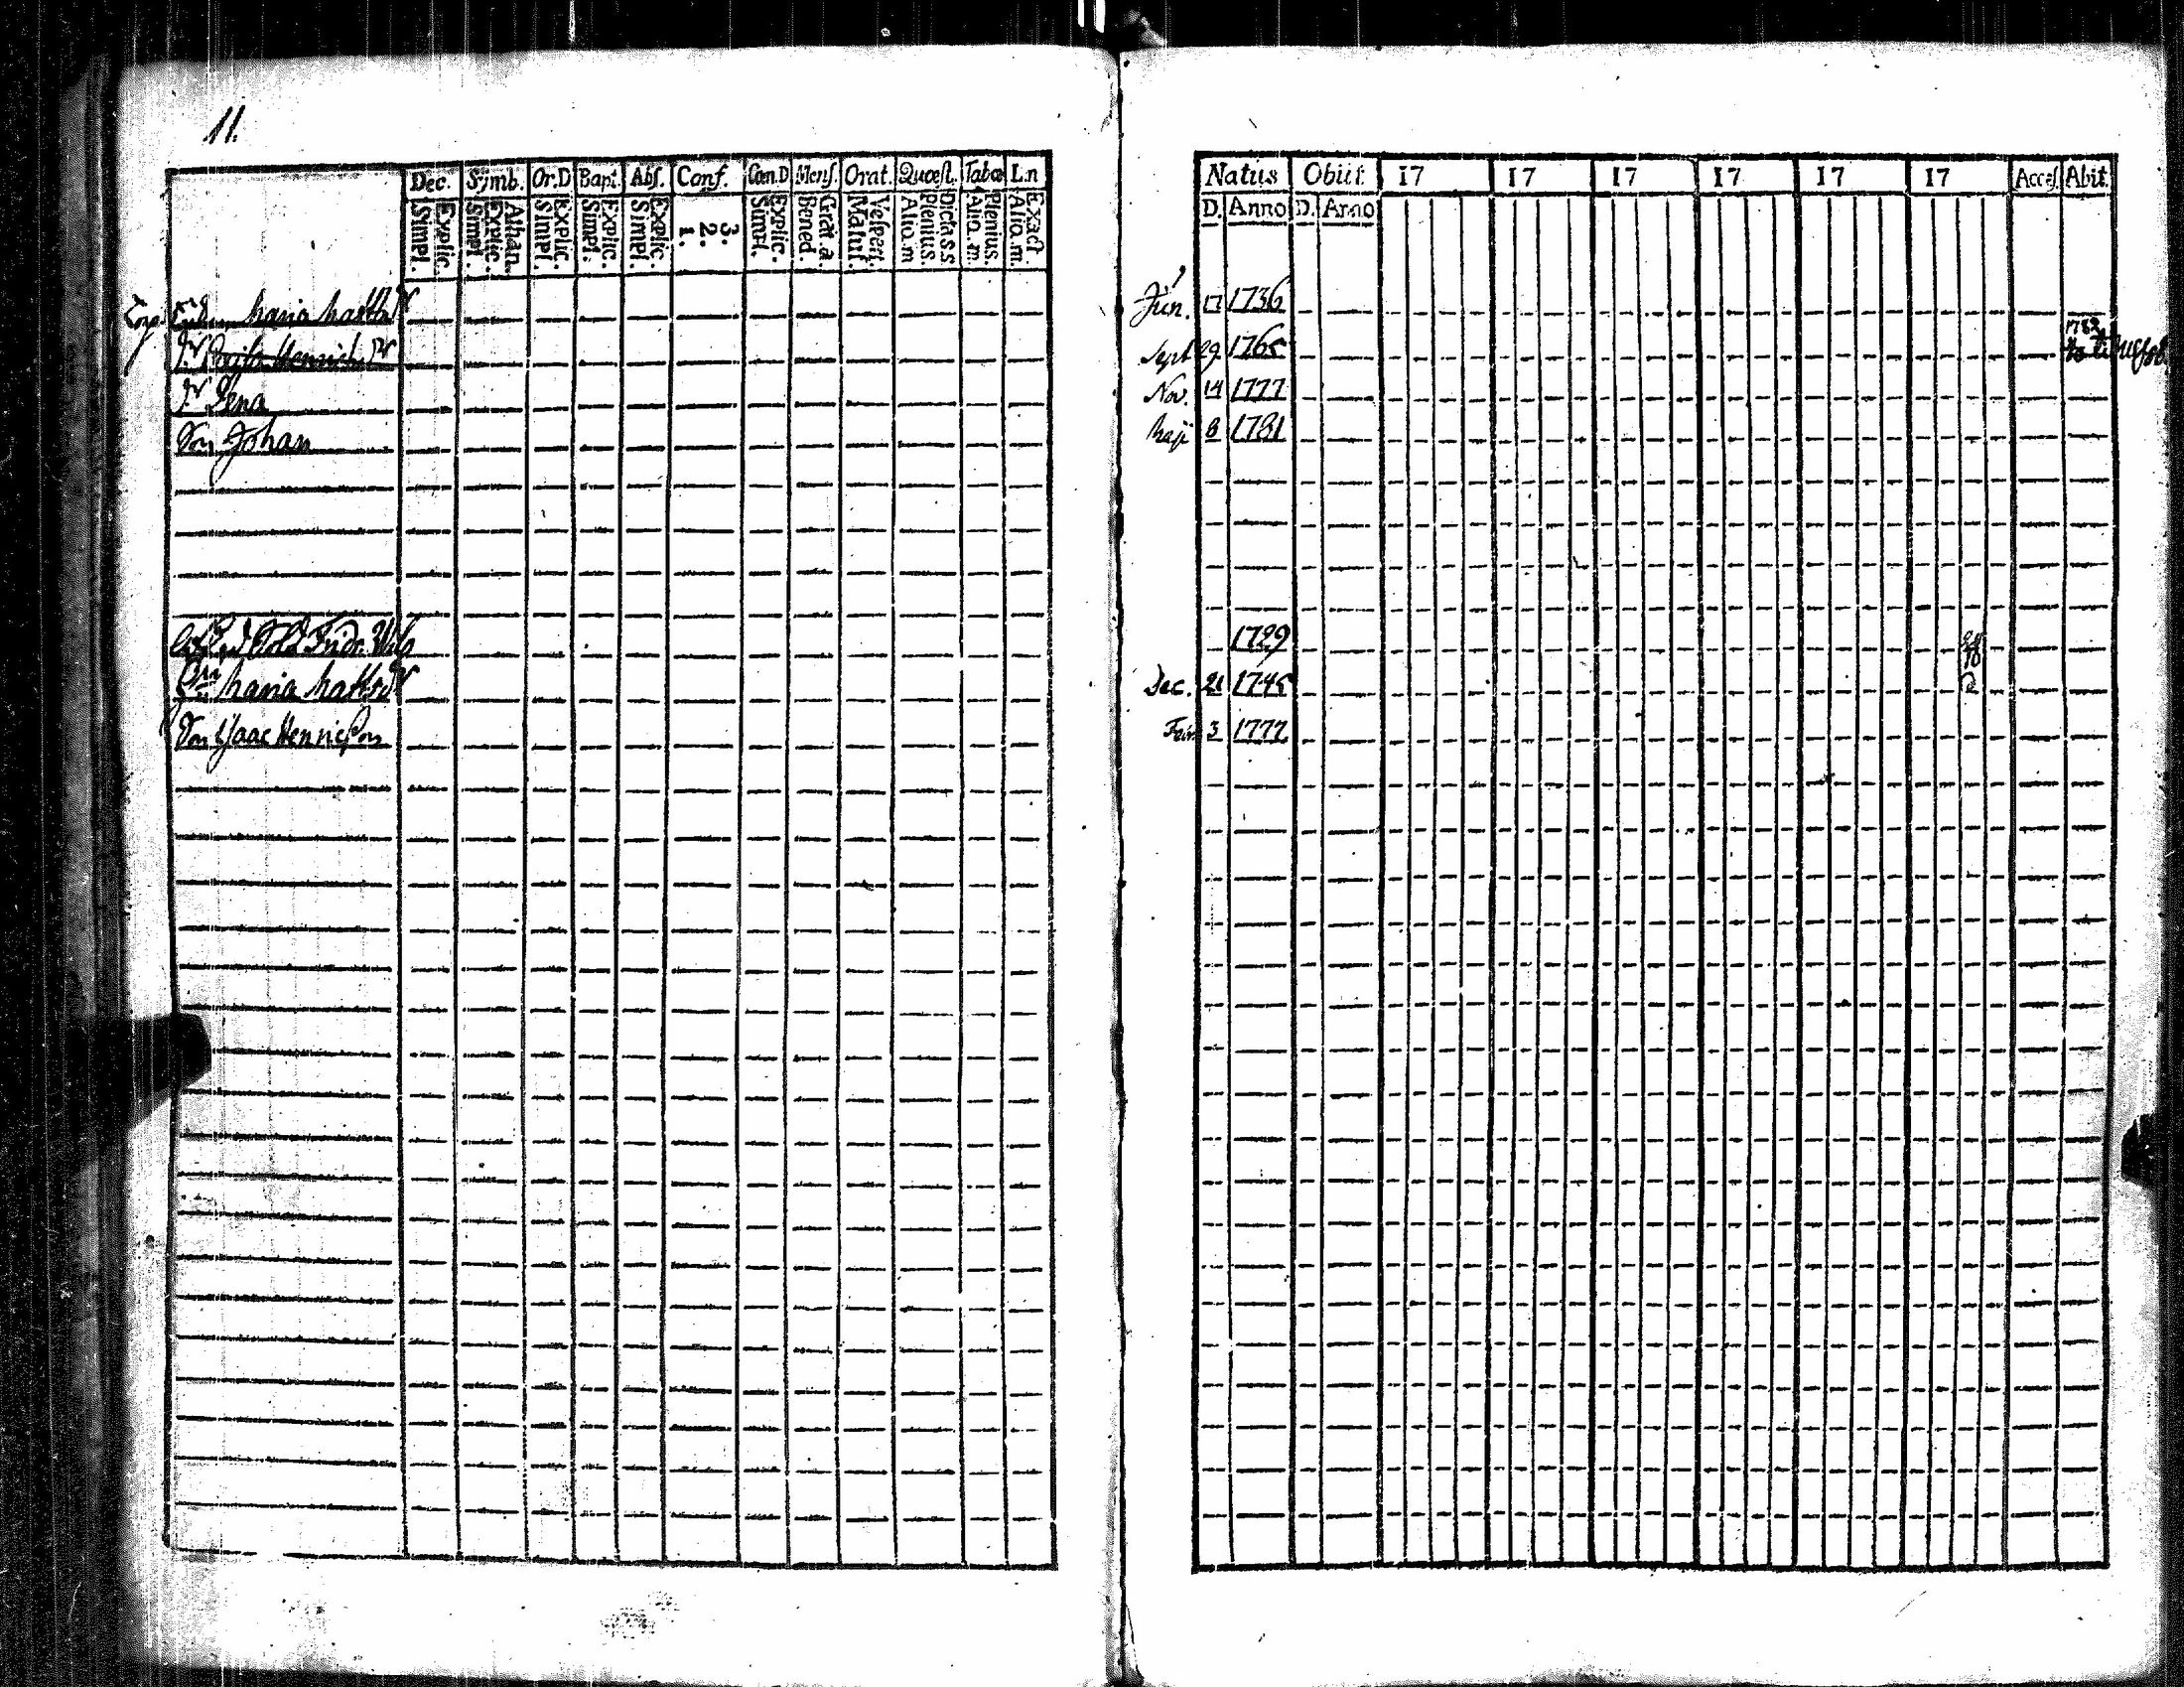 11.
Dec. Symb. Or.D Bapt. Abs. Conf. Cœn.D Mens. Orat. Quœst. Tabœ L.n
Explic. Simpl. Athan. Explic. Simpl. Explic. Simpl. Explic. Simpl. Explic. Simpl. 3. 2. 1. Explic. Simpl. Grat. a. Bened. Vespert. Matut. Dicta s.s. Plenius. Alio. m Plenius. Alio. m. Exact. Alio. m.
Maria Matts Dr
Dr Henrichs Dr
Dr Lena
Son Johan
Sold Fridr.
Maria Matts Dr
Son Isaac Henricson
Natus Obiit 17 17 17 17 17 17 Acces. Abit.
D. Anno D. Anno
Jun. 17 1736
Sept 29 1765 1782
Nov. 14 1777
Maji 8 1781
1729
Dec. 21 1745
3 1777